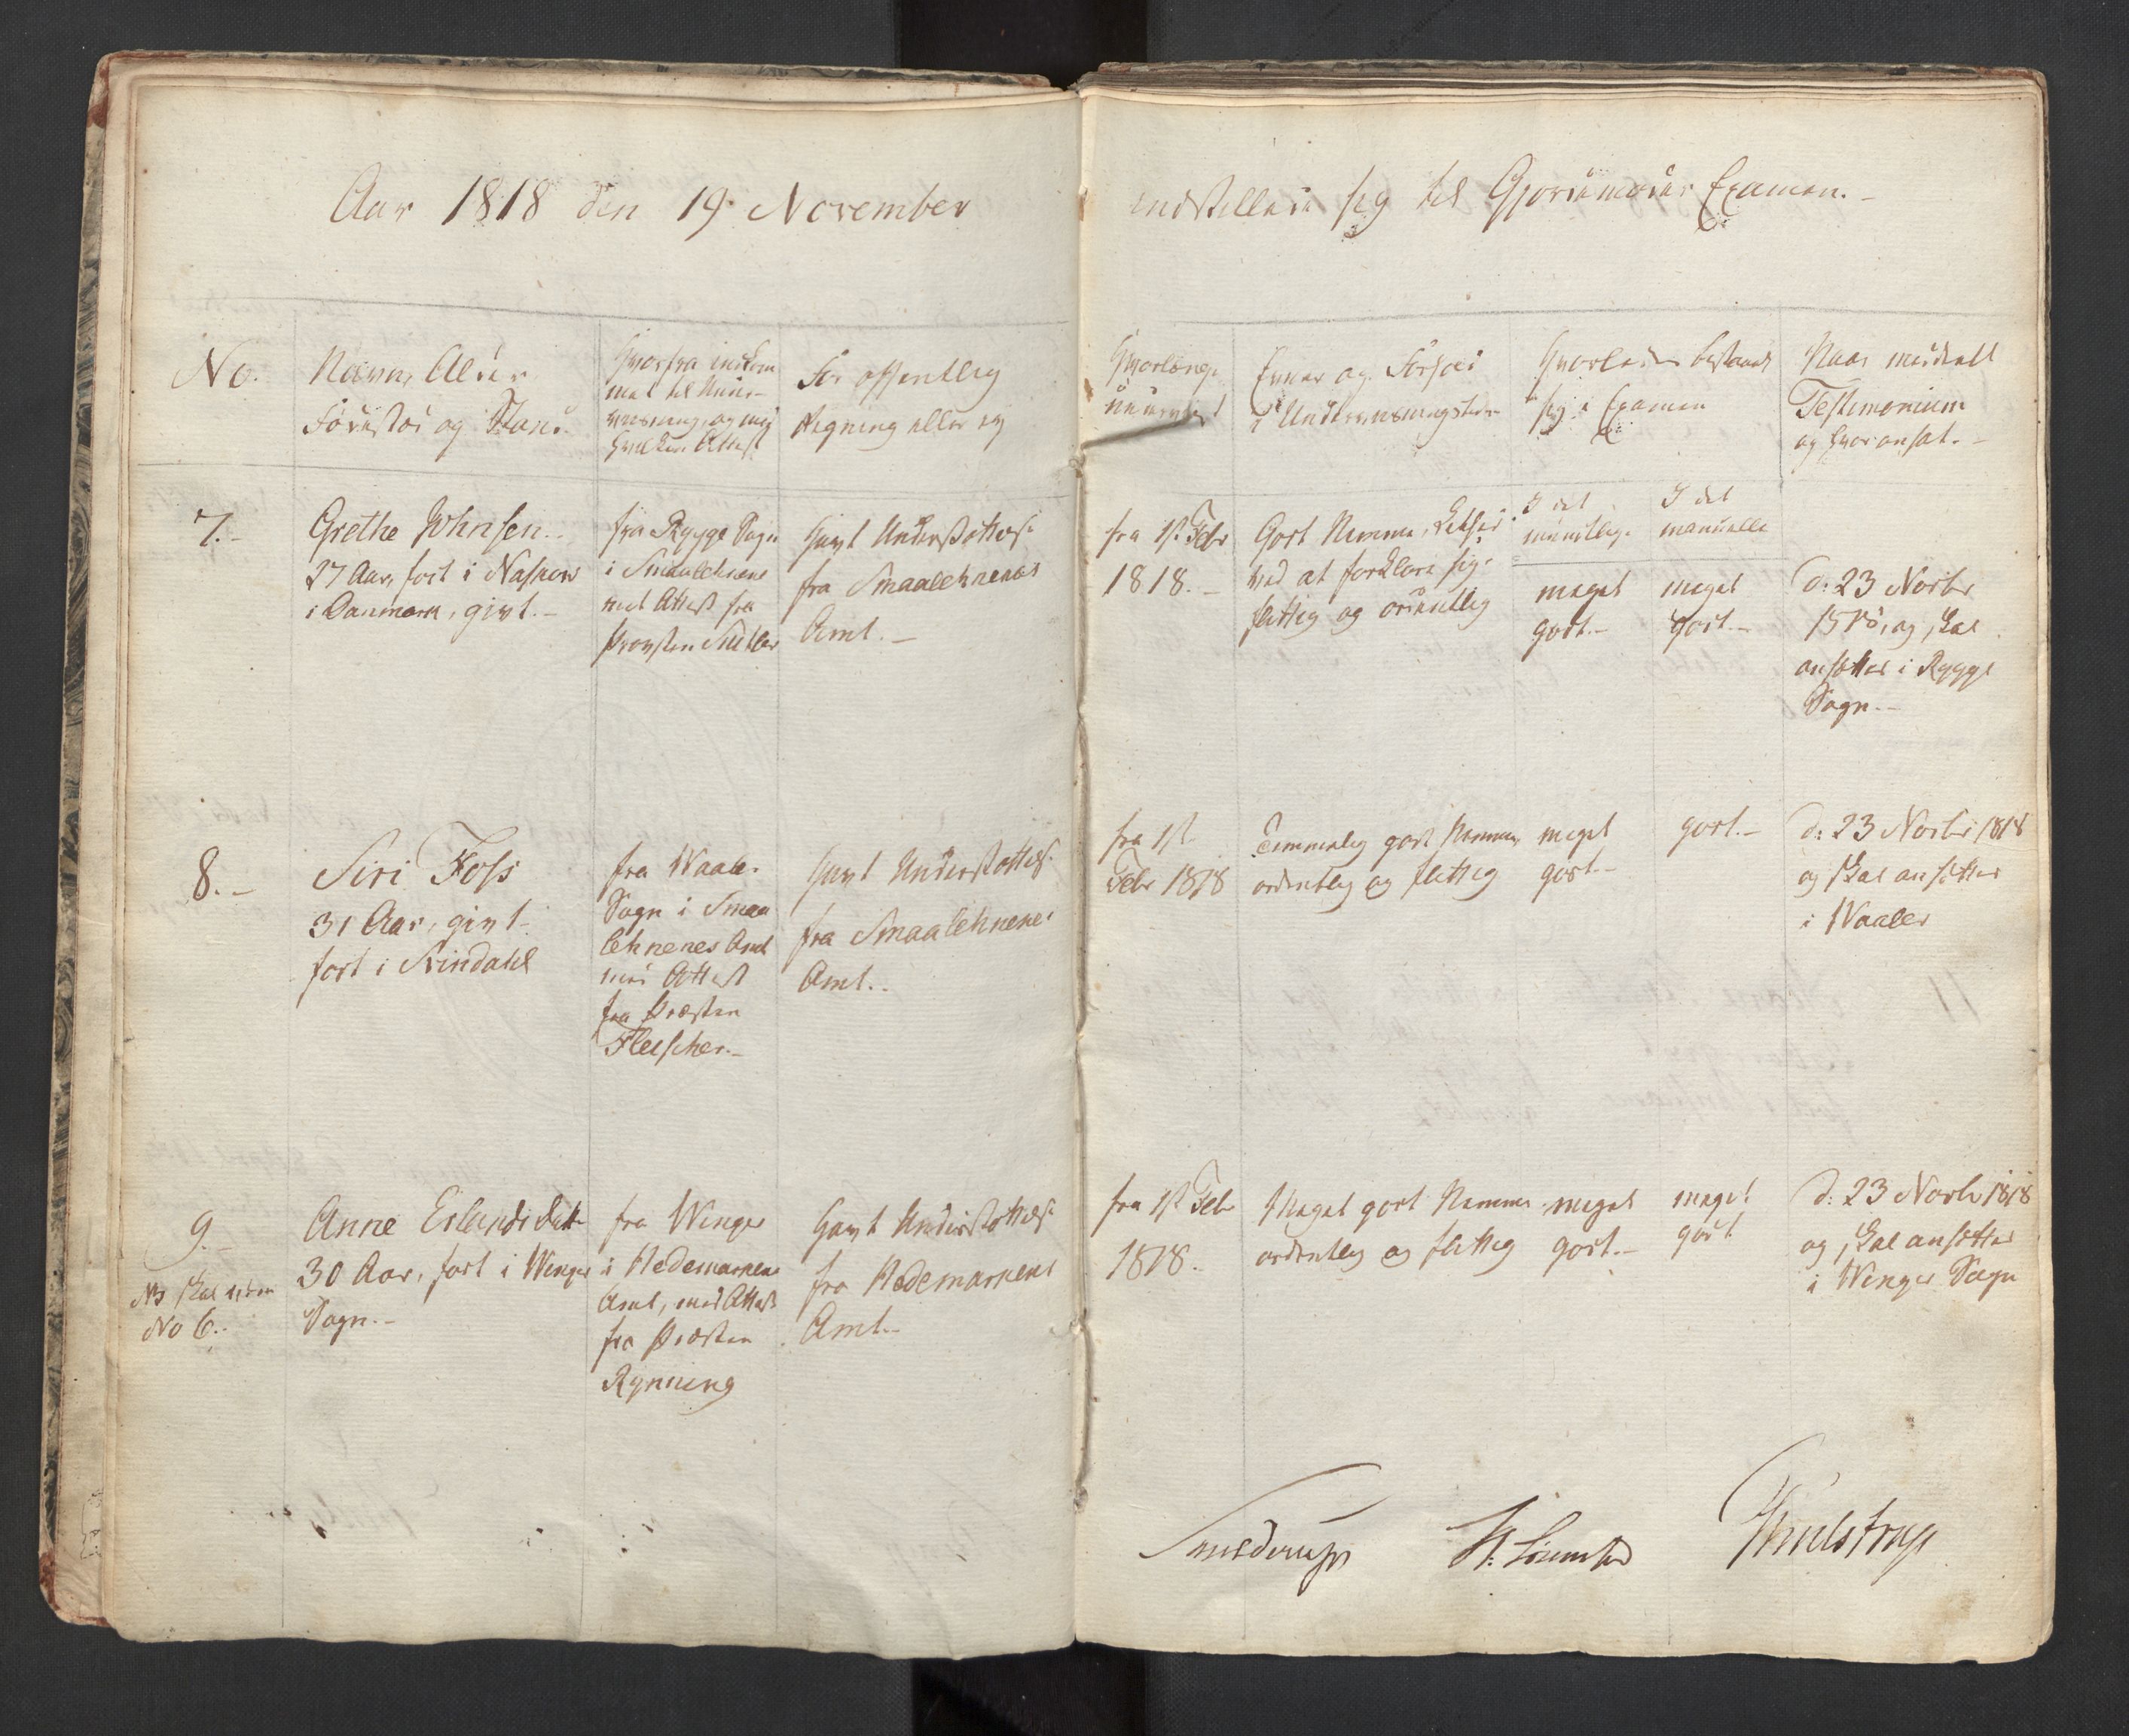 Aar 1818 den 19 November
indstillede sig til Gjordemoder Examen.
No.
Navn, Alder
Fødested og Stand.
Hvorfra indkom
met til Under-
viisning, og med
hvilken Attest
For offentlig
Regning eller ey
Hvorlænge
underviist
Evner og Forhold
i Underviisningstiden
Hvorledes bestaaet
sig i Examen
Naar meddeelt
Testimonium
og hvor ansat.
7.
Grethe Johnsen.
27 Aar, født i Naskow
i Danmark, givt.
fra Rygge Sogn
i Smaalehnene
med Attest fra
Provsten
Havt Understøttelse
fra Smaalehnenes
Amt.
fra 1st Febr
1818.
Godt Nemme,
ved at forklare sig,
flittig og ordentlig
I det
mundtlige
I det
manuelle
meget
godt.
meget
godt.
d: 23 Novbr
1818, og skal
ansættes i Rygge
Sogn.
8.
Siri Foss
31 Aar, givt.
født i Svindahl
fra Waaler
Sogn i Smaa
lehnenes Amt
med Attest
fra Præsten
Fleischer.
Havt Understøttelse
fra Smaalehnenes
Amt.
fra 1st
Febr 1818
Temmelig godt Nemme,
ordentlig og flittig
meget
godt.
godt.
d: 23 Novbr 1818
og skal ansættes
i Waaler
9.
NB skal være
No 6.
Anne Erlandsdatter
30 Aar, født i Winger
Sogn.
fra Winger
i Hedemarkens
Amt, med Attest
fra Præsten
Rynning
Havt Understøttelse
fra Hedemarkens
Amt.
fra 1st Febr
1818.
Meget godt Nemme
ordentlig og flittig
meget
godt.
meget
godt
d: 23 Novbr 1818
og skal ansættes
i Winger Sogn
Thulstrup